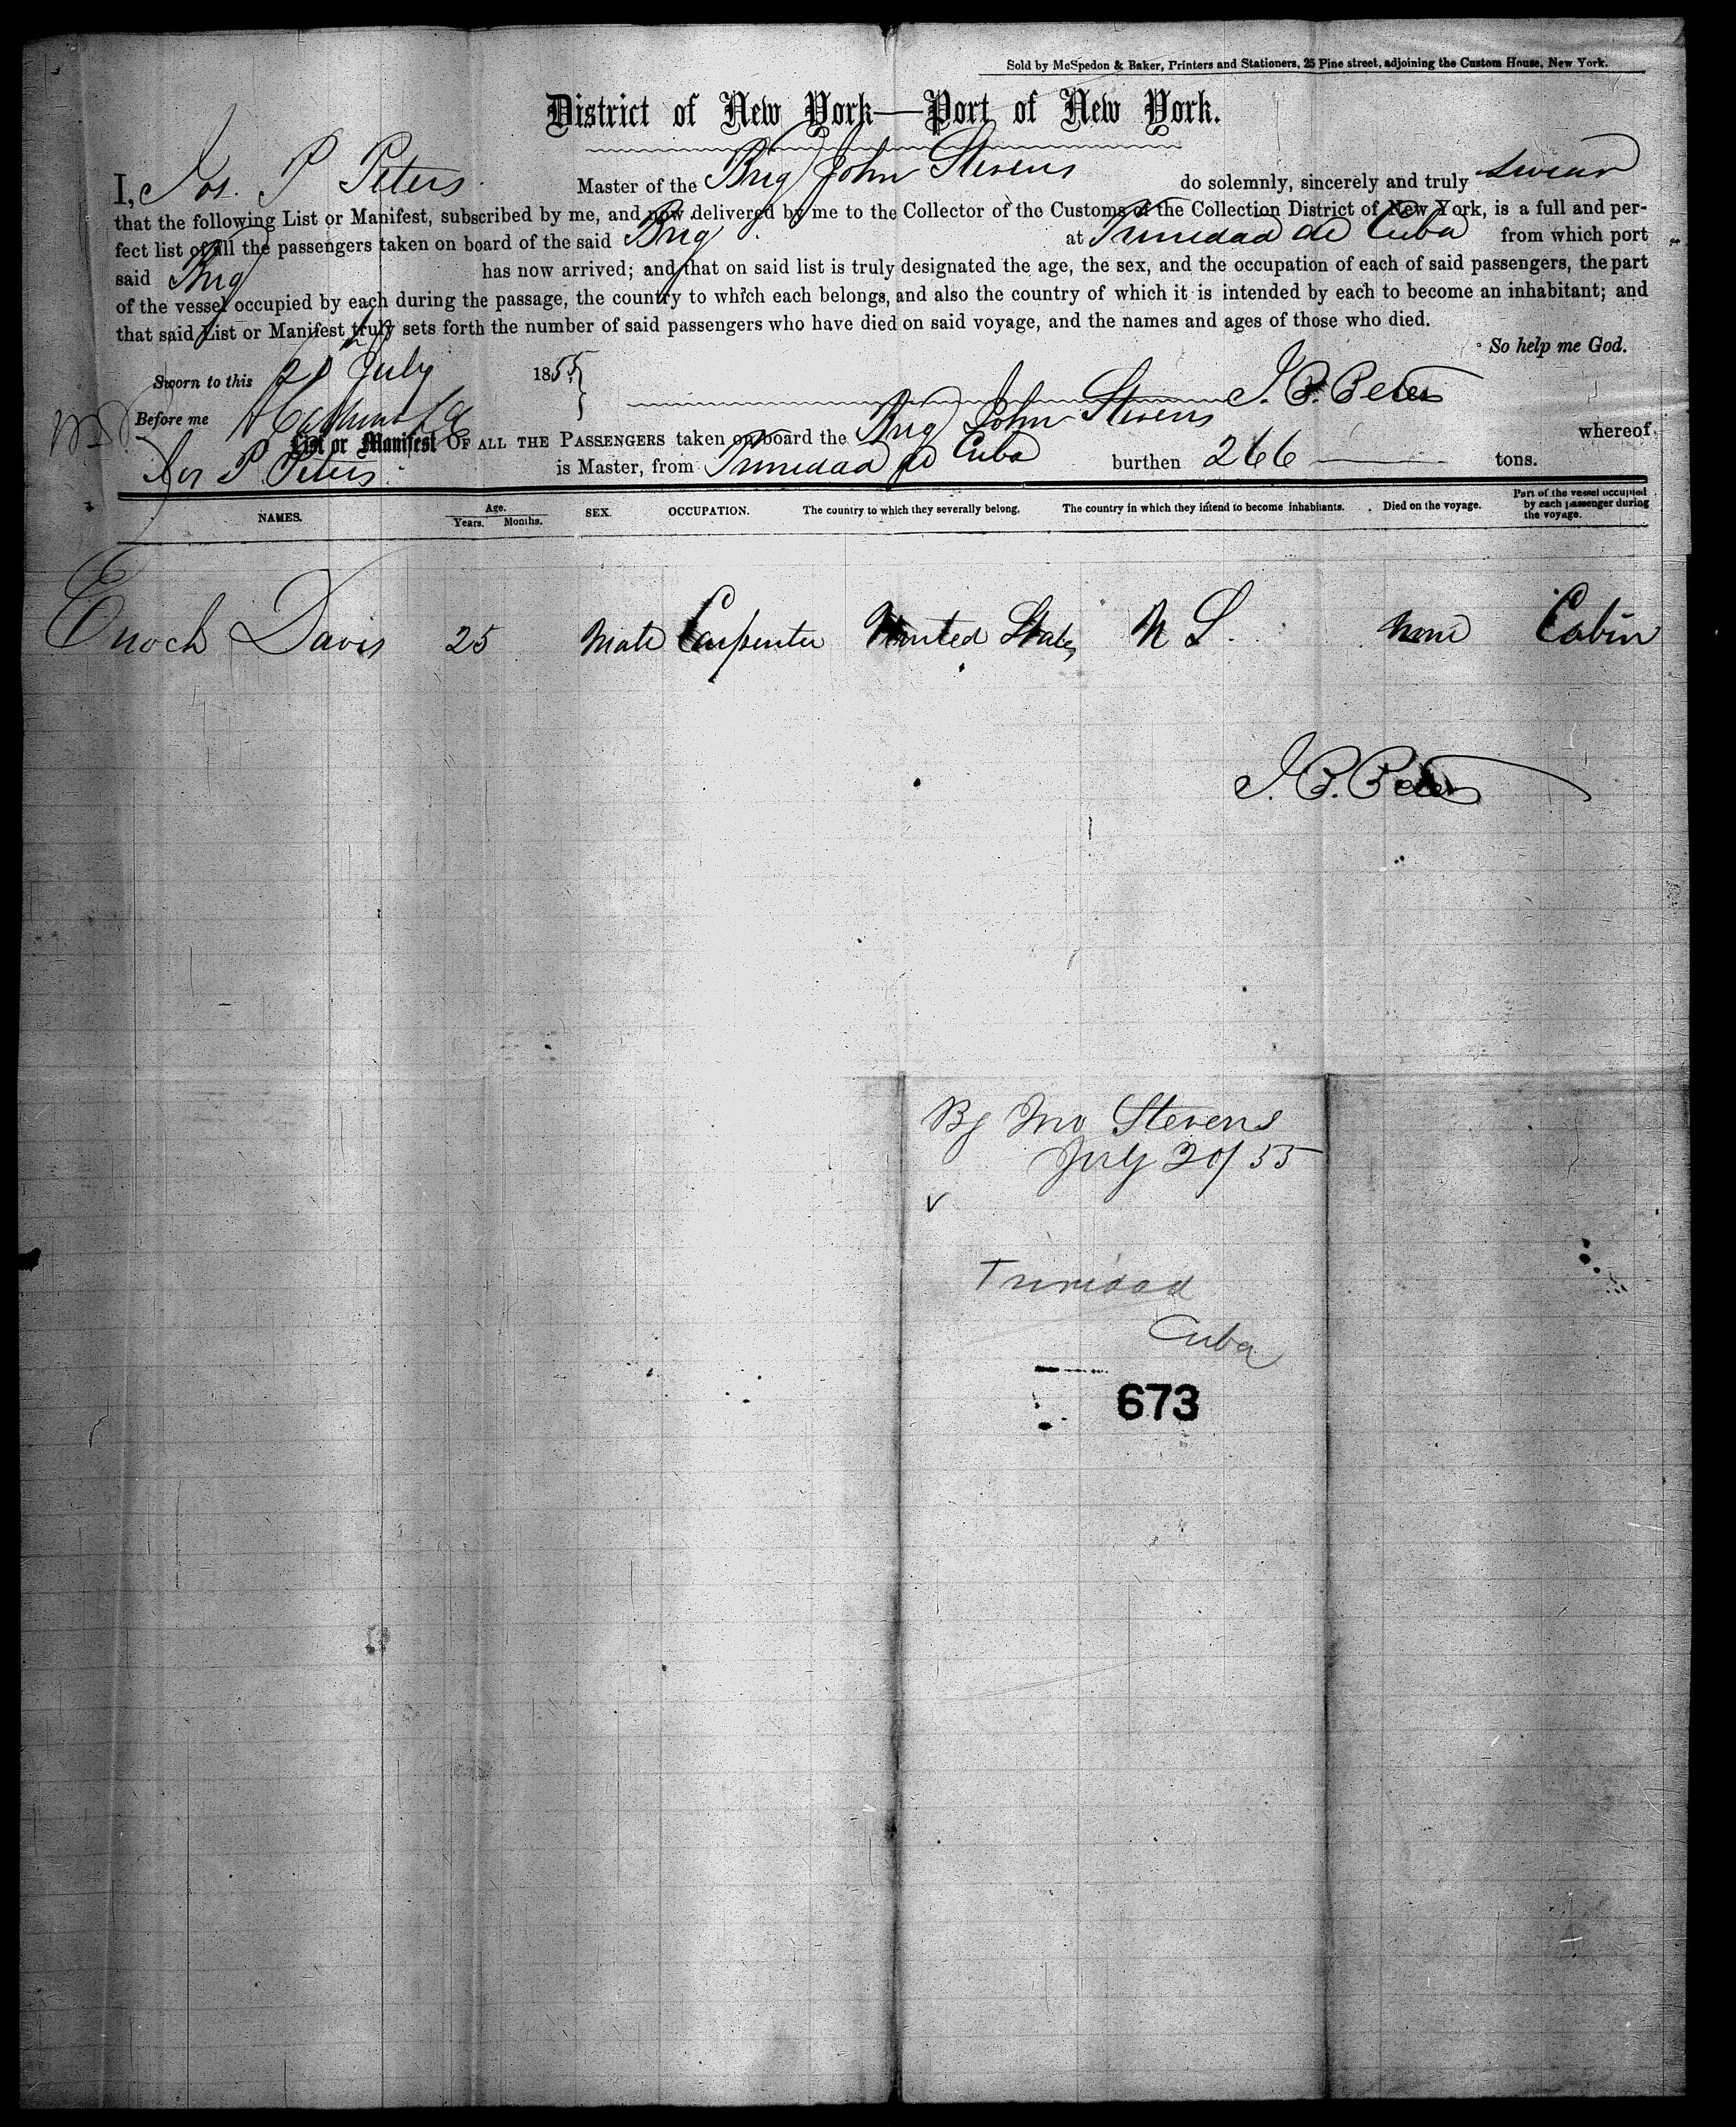 Sold by McSpedon & Baker, Printers and Stationers, 25 Pine street, adjoining the Custom House, New York.
District of New York—Port of New York.
I, Jos. P Peters Master of the Brig John Stevens do solemnly, sincerely and truly swear
that the following List or Manifest, subscribed by me, and now delivered by me to the Collector of the Customs of the Collection District of New York, is a full and per-
fect list of all the passengers taken on board of the said Brig at Trinidad de Cuba from which port
said Brig has now arrived; and that on said list is truly designated the age, the sex, and the occupation of each of said passengers, the part
of the vessel occupied by each during the passage, the country to which each belongs, and also the country of which it is intended by each to become an inhabitant; and
that said List or Manifest truly sets forth the number of said passengers who have died on said voyage, and the names and ages of those who died.
So help me God.
Sworn to this 20 July 1855
J. P. Peters
Before me
List or Manifest OF ALL THE PASSENGERS taken on board the Brig John Stevens whereof
Jos P. Peters is Master, from Trinidad de Cuba burthen 266 tons.
NAMES. Age. Years. Months. SEX. OCCUPATION. The country to which they severally belong. The country in which they intend to become inhabitants. Died on the voyage. Part of the vessel occupied by each passenger during the voyage.
Enoch Davis 25 Male Carpenter United States none Cabin
J. P. Peters
Bg Jno Stevens
July 20/55
v
Trinidad
Cuba
673